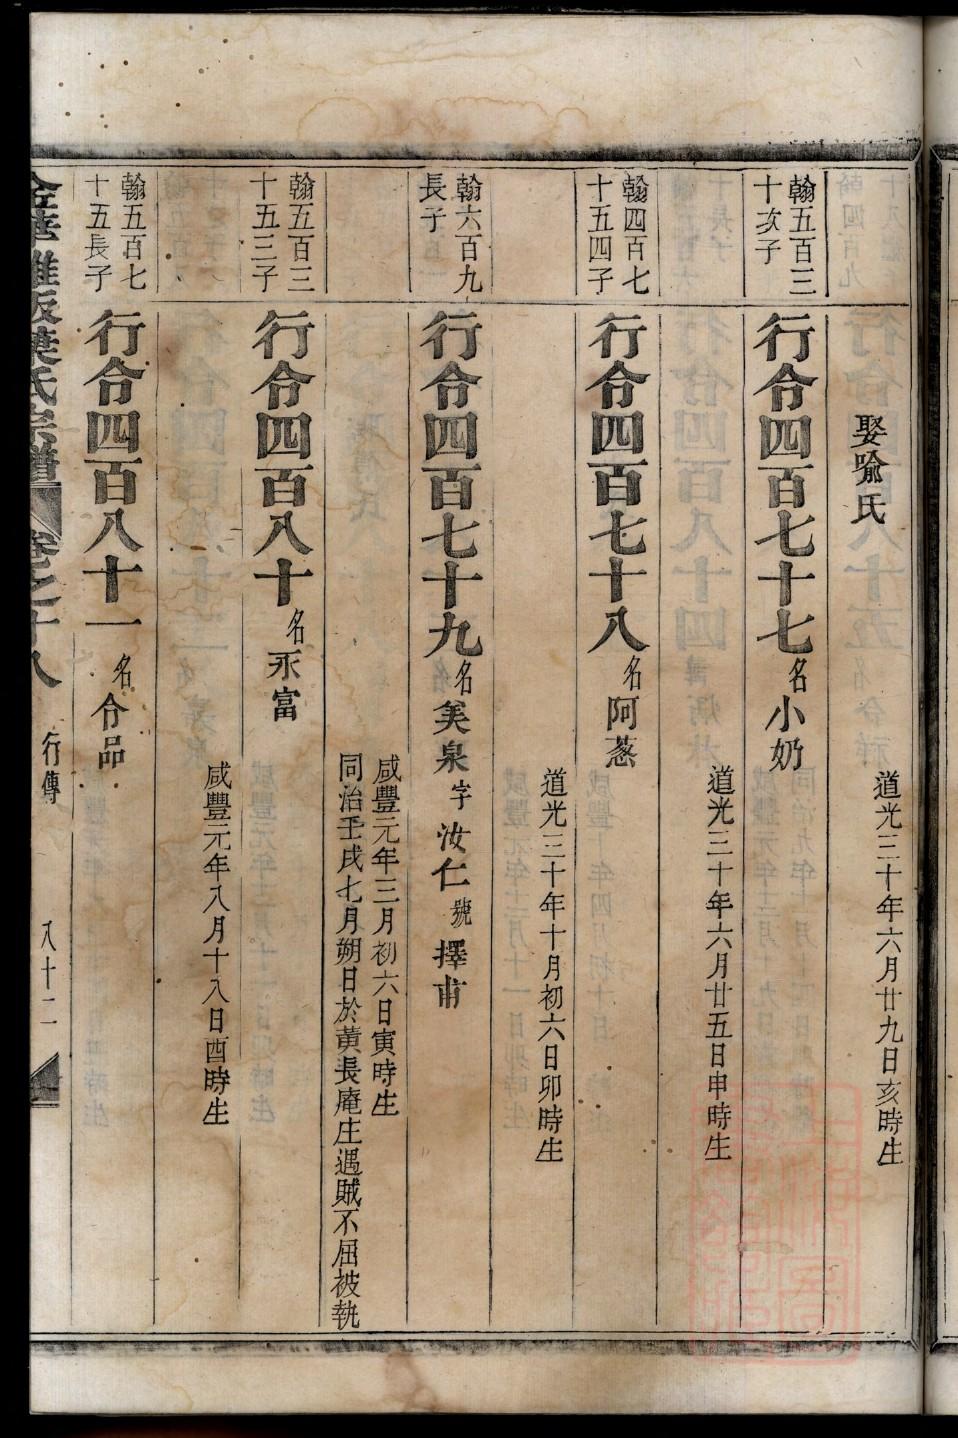 道光三十年六月廿九日亥時生
娶喻氏
翰五百三
十次子
行令四百七十七名小奶
道光三十年六月廿五日申時生
翰四百七
十五四子
行令四百七十八名阿蔥
道光三十年十月初六日卯時生
翰六百九
長子
行令四百七十九名美泉字汝仁號擇甫
咸豐元年三月初六日寅時生
同治壬戌七月朔日於黃長庵庄遇賊不屈被執
翰五百三
十五三子
行令四百八十名永富
咸豐元年八月十八日酉時生
翰五百七
十五長子
行令四百八十一名令品
卷之十八 行傳 八十二